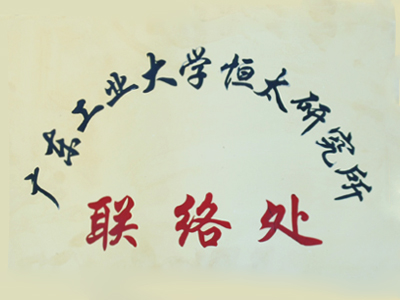 广东工业大学恒太研究所
联络处